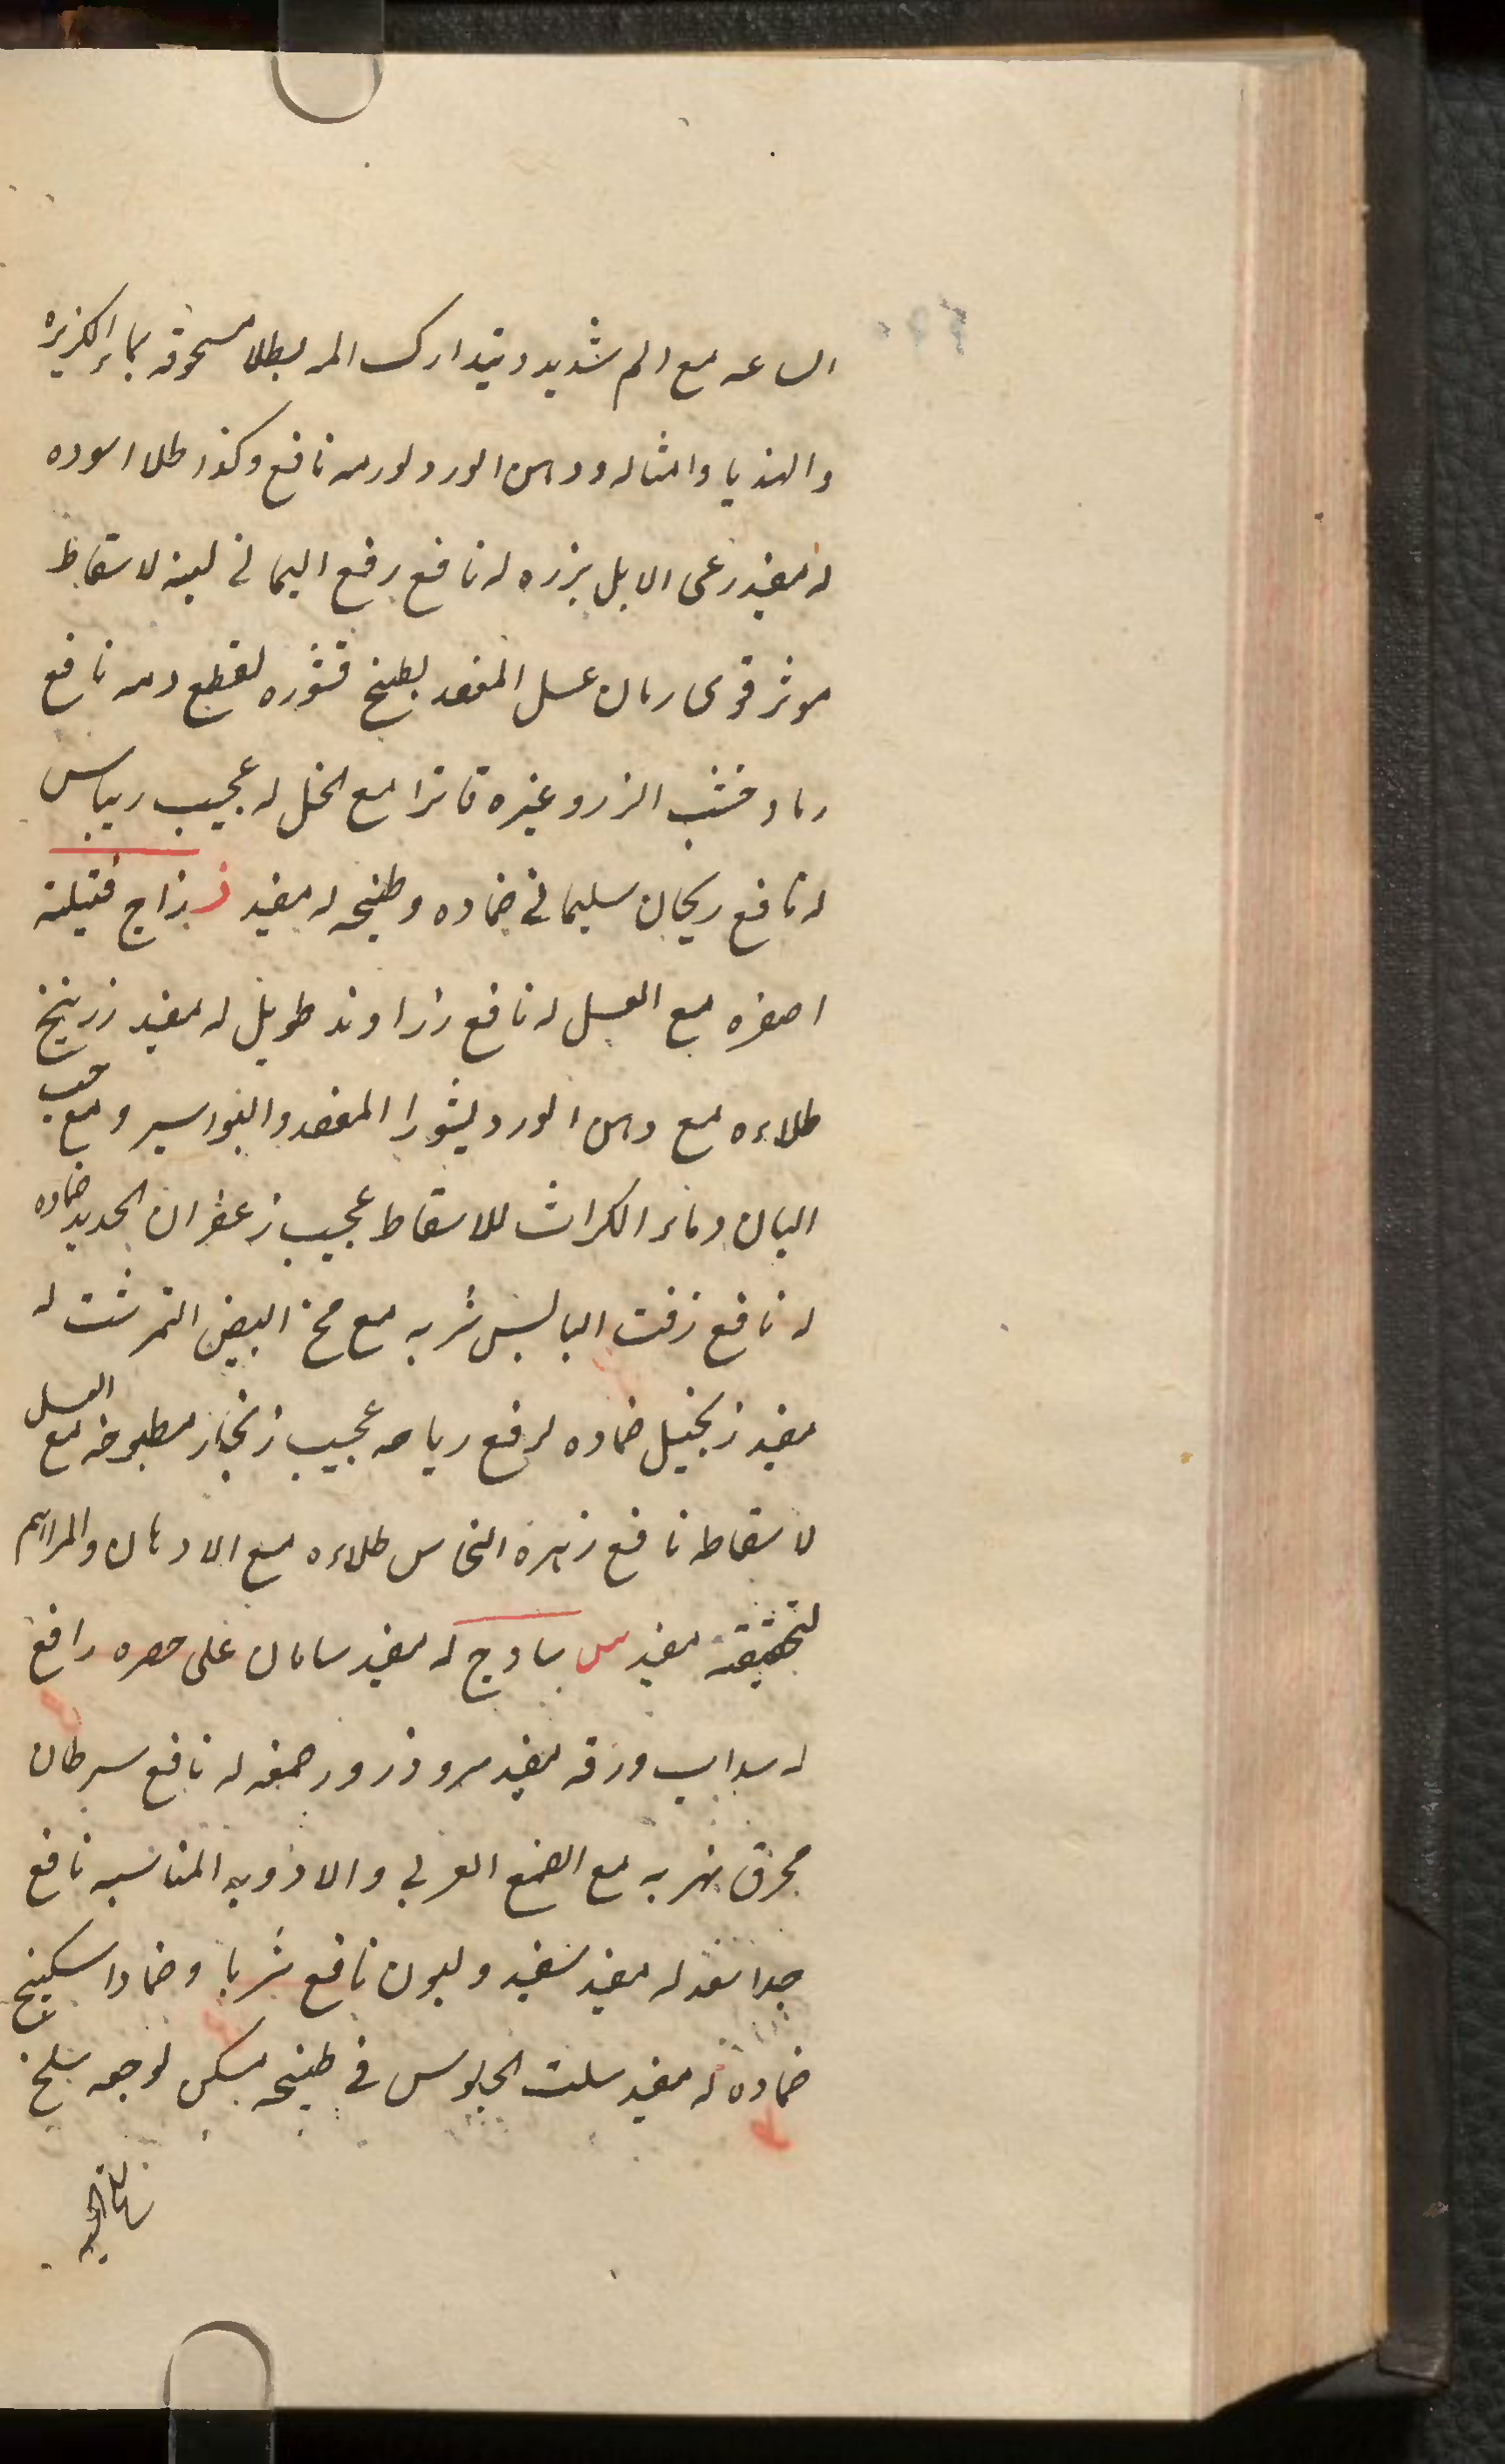 الساعه مع الم شديد ويتدارك المه بطلا مسحوقه بماء الكزبره
والهنديا وامثاله ودهن الورد لورمه نافع وكذا طلا اسوده
له مفيد رعى الابل بزره له نافع رقع اليماني لبنه لاسقاط
موثر قوى رمان غسل المقعد بطبخ قشوره لقطع دمه نافع
رماد خشب الزرو غيره قاترا مع الخل له عجيب ريباس
له نافع ريحان سليماني ضماده وطبخه له مفيد ز زاج فتيلة
اصفره مع العسل له نافع زراوند طويل له مفيد زرنيخ
طلاءه مع دهن الورد لبثور المقعد والبواسير ومع حب
البان وماء الكراث للاسقاط عجيب زعفران الحديد ضماده
له نافع زفت اليابس شربه مع مخ البيض النمرشت له
مفيد زنجبيل ضماده لرفع رياحه عجيب زنجار مطبوخه مع العسل
لاسقاطه نافع زهرة النحاس طلاءه مع الادهان والمراهم
مفيد س سادج له مفيد سامان على حصره رافع
له سداب ورقه مفيد سرو ذرور صمغه له نافع سرطان
محرق نهريه مع الصمغ العربي والادويه المناسبه نافع
جدا سعد له مفيد سفيد وليون نافع شربا وضمادا سكبينج
ضماده له مفيد سلت الجلوس في طبخه مسكن لوجعه سلخ